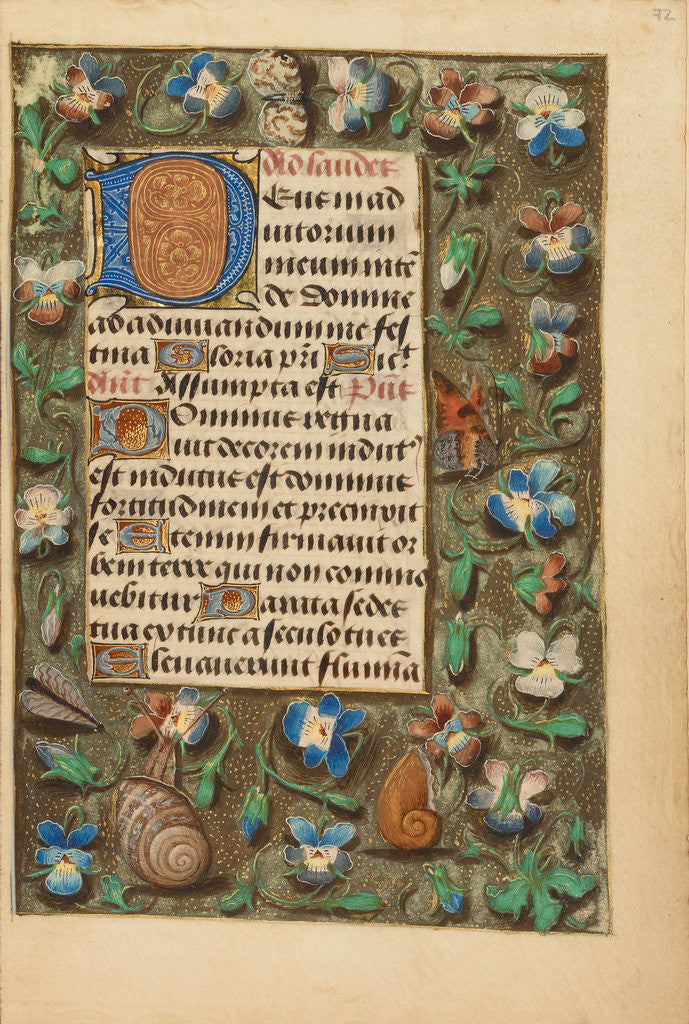 72
Ad laudes
Deus in ad
iutorium
meum intē
de Domine
ad adiuuandum me fes
tina Gloria pr̄i Sict̄
Añt Assumpta est Pūs
Dominus regna
uit decorem indut⁹
est indutus est dominus
fortitudinem et precinxit
se Etenim firmauit or
bem terre qui non commo
uebitur Parata sedes
tua ex tunc a seculo tu es
Eleuauerunt flumīa